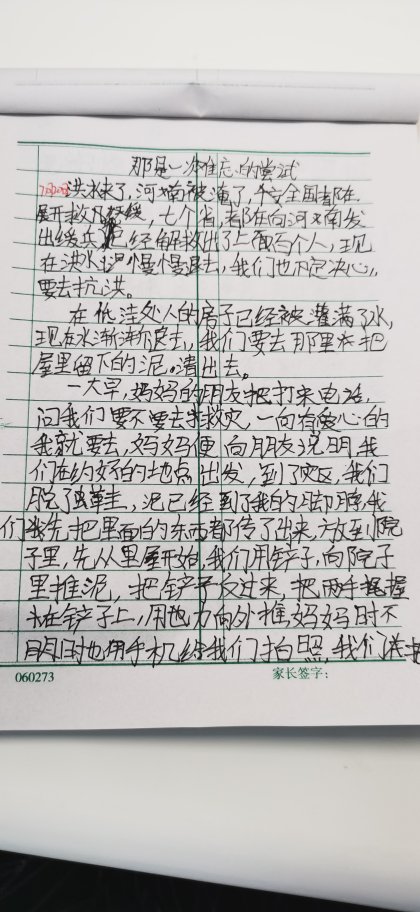 那是一次难忘的尝试
洪水来了，河南被淹了，全国都在
展开救援，七个省，都在向河南发
出缓兵，已经解救出了上百个人，现
在洪水已慢慢退去，我们也下定决心，
要去抗洪。
在低洼处人的房子已经被灌满了水，
现在水渐渐退去，我们要去那里把
屋里留下的泥清出去。
一大早，妈妈的朋友把打来电话，
问我们要不要去救灾，一向有爱心的
我就要去，妈妈便向朋友说明，我
们在约好的地点出发，到了灾区，我们
脱了鞋，泥已经到了我的脚脖，我
们先把里面的东西都传了出来，放到院
子里，先从里屋开始，我们用铲子，向院子
里推泥，把铲子反过来，把两手握
在铲子上，用地力向外推，妈妈时不
时也用手机给我们拍照，我们
060273 家长签字：